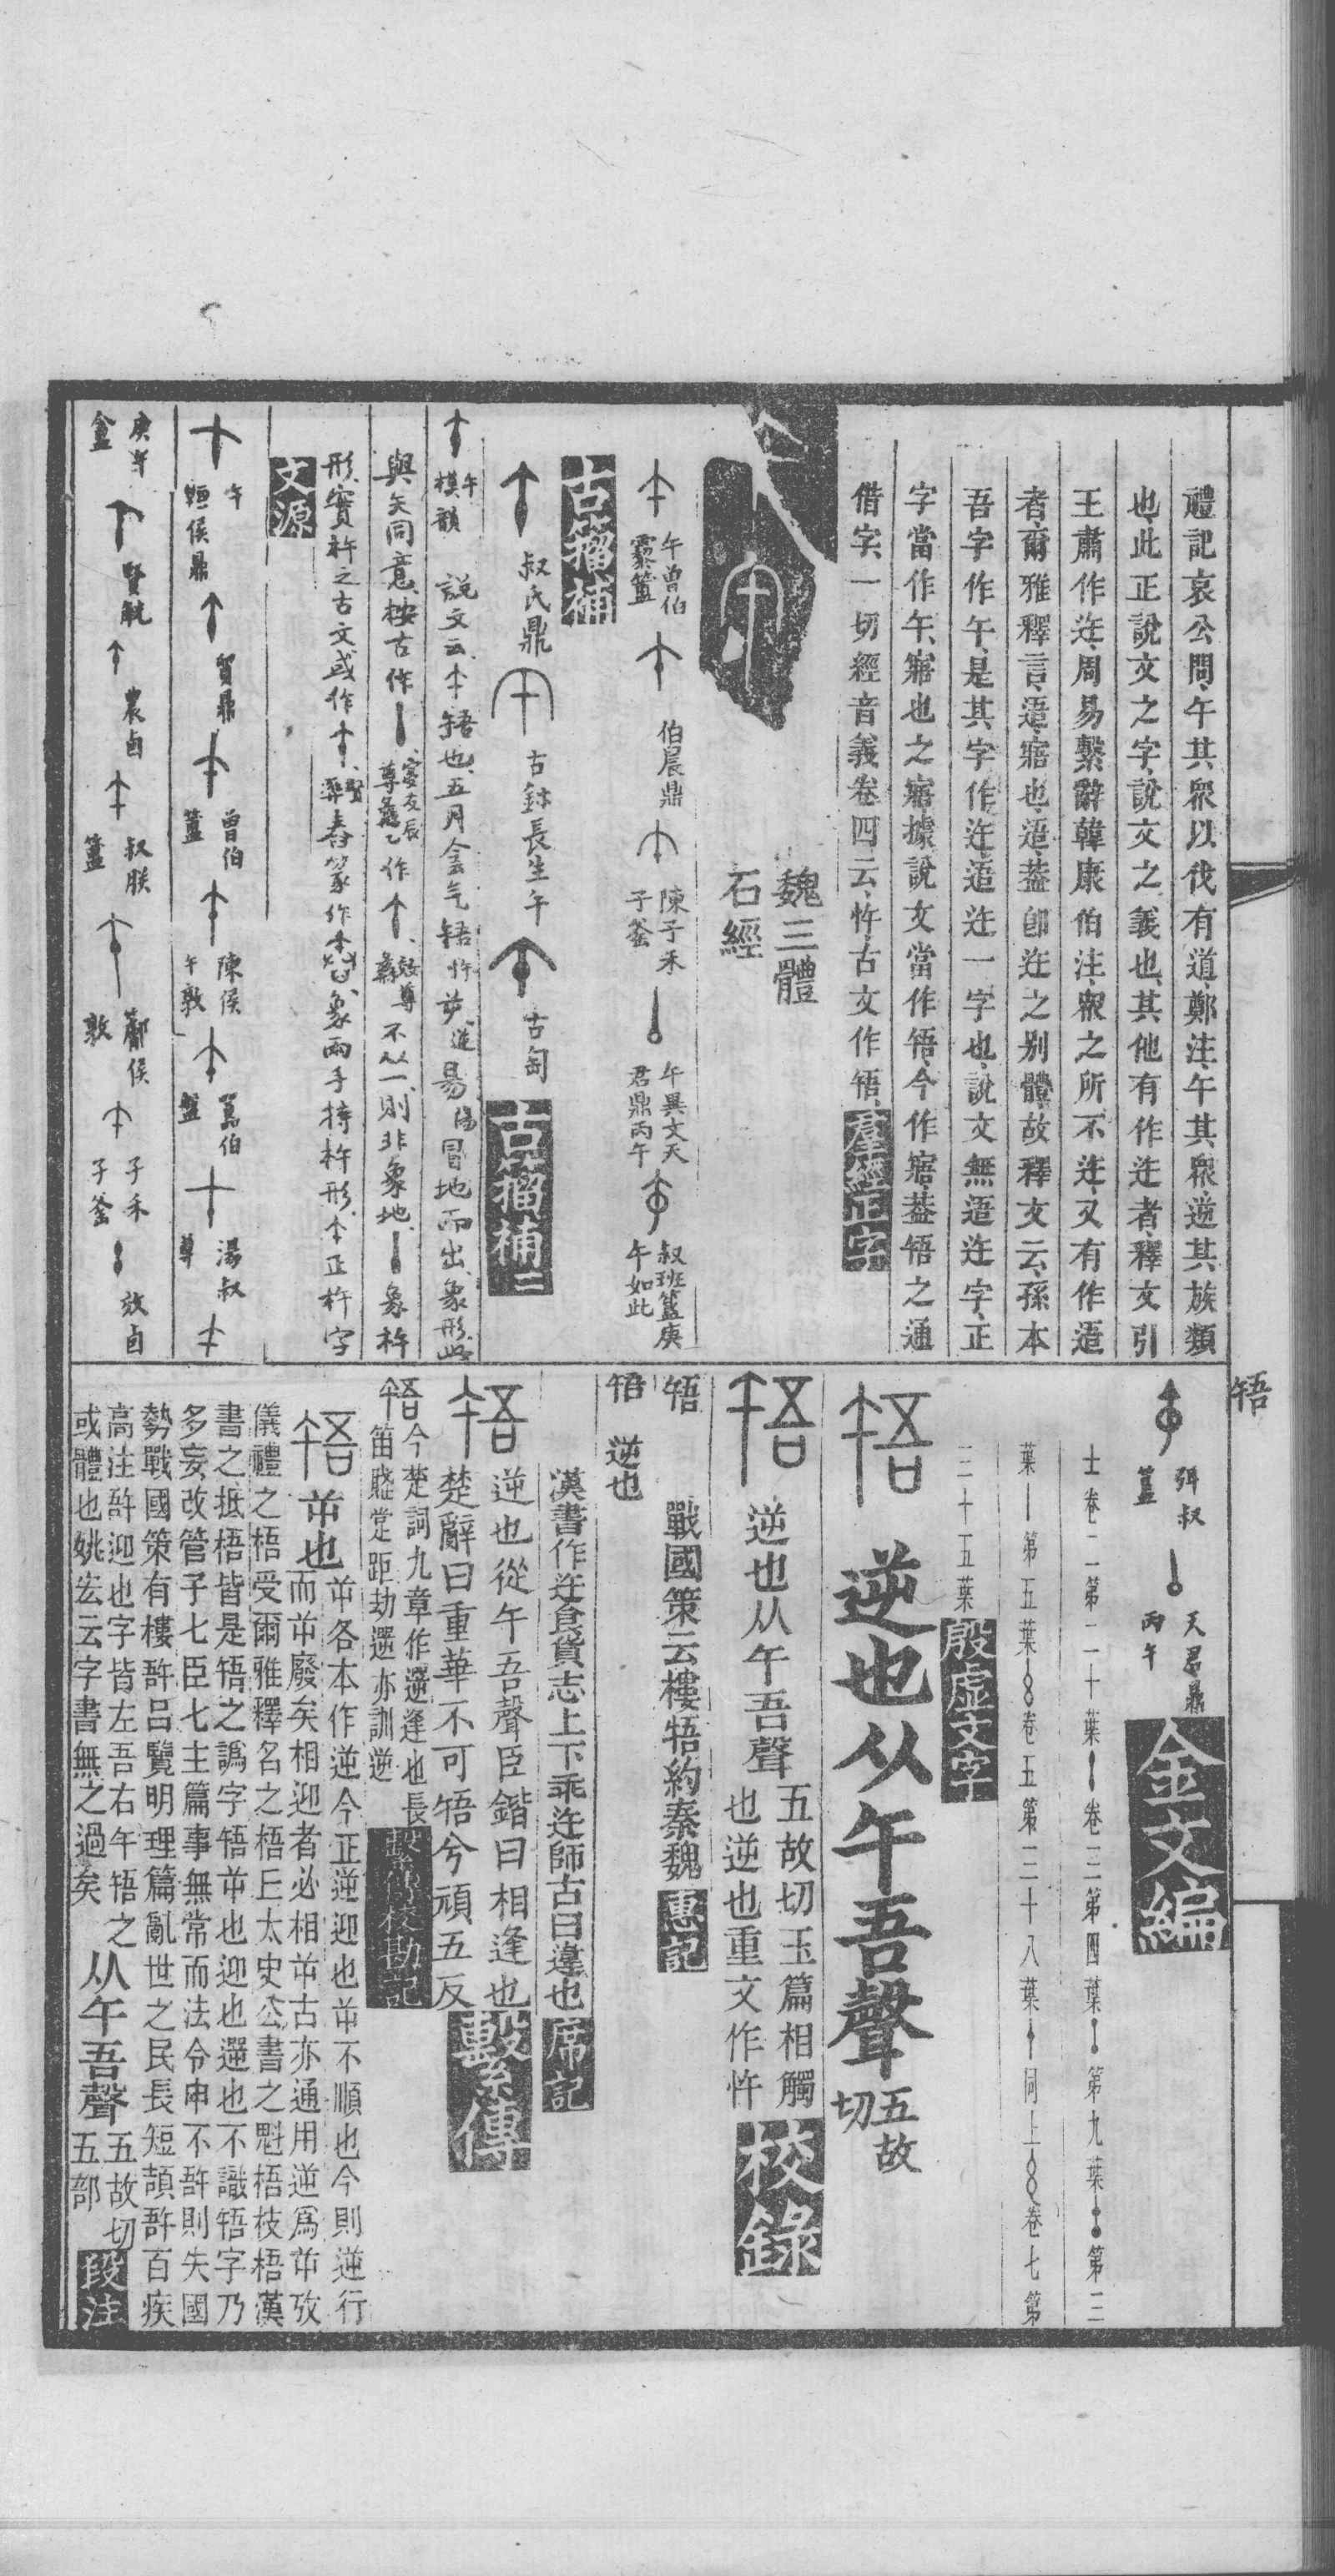 禮記哀公問、午其眾以伐有道、鄭注、午其眾、逆其族類
也、此正說文之字、說文之義也、其他有作迕者、釋文引
王肅作迕、周易繫辭韓康伯注、眾之所不迕、又有作逜
者、爾雅釋言、逜、寤也、逜、葢卽迕之別體、故釋文云、孫本
吾字作午、是其字作迕、逜迕一字也、說文無逜迕字、正
字當作午、寤也之寤、據說文當作啎、今作寤、葢啎之通
借字、一切經音義卷四云、忤、古文作啎、羣經正字
魏三體
石經
午曾伯
霥簠
伯晨鼎
陳子禾
子釜
午異文天
君鼎丙午
叔班簋庚
午如此
古籀補
叔氏鼎
古鉢長生午
古匋
古籀補二
午
模韻
說文云、啎也、五月侌气啎忤屰、逆昜陽冒地而出、象形、此
與矢同意、按古作
不从一、則非象地、
象杵
形、實杵之古文、或作
舂篆作
象兩手持杵形、
正杵字
文源
午
侯鼎
貿鼎
曾伯
簠
陳侯
午敦
湯叔
尊
庚午
賢觥
農卣
叔朕
簠
敦
子禾
子釜
效卣
啎
弭叔
簋
天君鼎
丙午
金文編
卷二第二十葉
卷三第四葉
第九葉
第三
葉
第五葉
卷五第三十八葉
同上
卷七第
二十五葉
殷虛文字
啎
逆也从午吾聲
五故
切
啎
逆也从午吾聲
五故切玉篇相觸
也逆也重文作忤
校錄
啎
戰國策云樓啎約秦魏
惠記
啎
逆也
漢書作迕食貨志上下乖迕師古曰違也
席記
啎
逆也從午吾聲臣鍇曰相逢也
楚辭曰重華不可啎兮頑五反
繫傳
啎今楚詞九章作遌逢也長
笛賦定距劫遌亦訓逆
繫傳校勘記
啎
屰也
屰各本作逆今正逆迎也屰不順也今則逆行
而屰廢矣相迎者必相屰古亦通用逆爲屰攷
儀禮之梧受爾雅釋名之梧丘太史公書之魁梧枝梧漢
書之抵梧皆是啎之譌字啎屰也迎也遻也不識啎字乃
多妄改管子七臣七主篇事無常而法令申不䛿則失國
勢戰國策有樓䛿呂覽明理篇亂世之民長短頡䛿百疾
高注䛿迎也字皆左吾右午啎之
或體也姚宏云字書無之過矣
从午吾聲
五故切
五部
段注